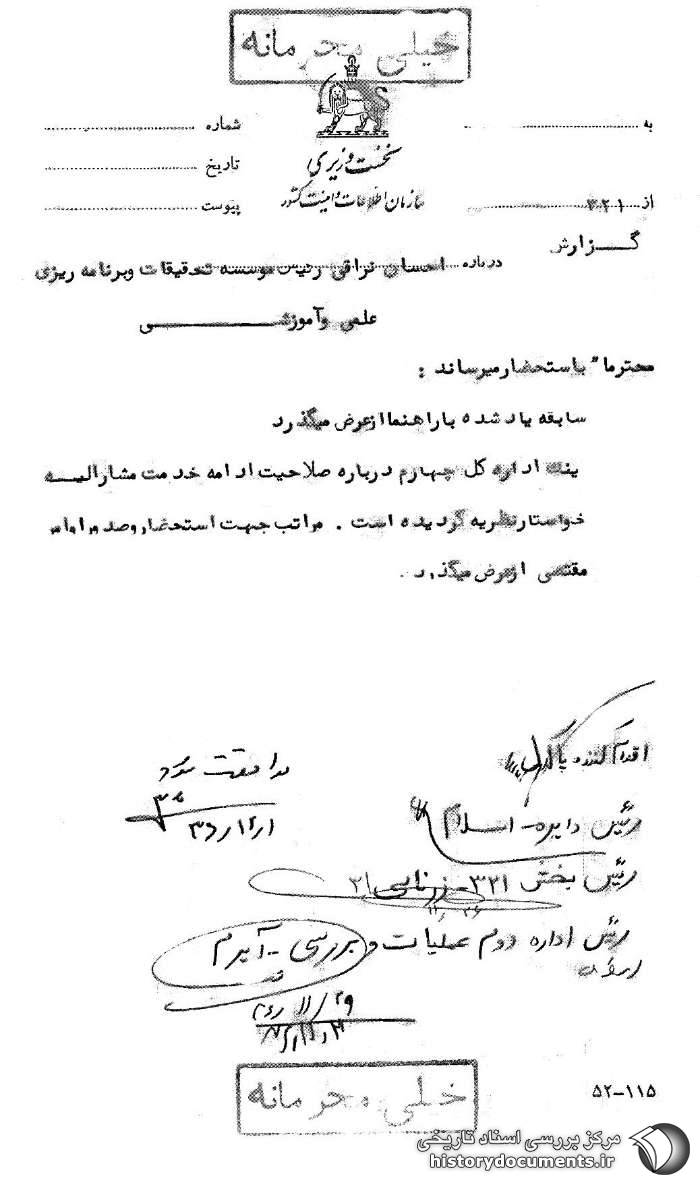 خیلی محرمانه
نخست وزیری
سازمان اطلاعات و امنیت کشور
به
از ۳۲۱
شماره
تاریخ
پیوست
گزارش
درباره احسان نراقی رئیس موسسه تحقیقات وبرنامه ریزی
علمی وآموزشی
محترما" باستحضار میرساند :
سابقه یاد شده با راهنما از عرض میگذرد
اداره کل چهارم درباره صلاحیت ادامه خدمت مشارالیه
خواستار نظریه گردیده است . مراتب جهت استحضار وصدور اوامر
مقتضی از عرض میگذرد .
اقدام کننده
رئیس دایره - اسلام
رئیس بخش ۳۲۱ -
رئیس اداره دوم عملیات و بررسی - آیرم
موافقت شود
خیلی محرمانه
۵۲-۱۱۵
مرکز بررسی اسناد تاریخی
historydocuments.ir